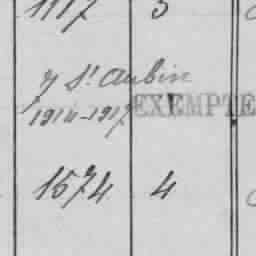 1117 3
y St Aubin
1914-1917 EXEMPTE
1574 4